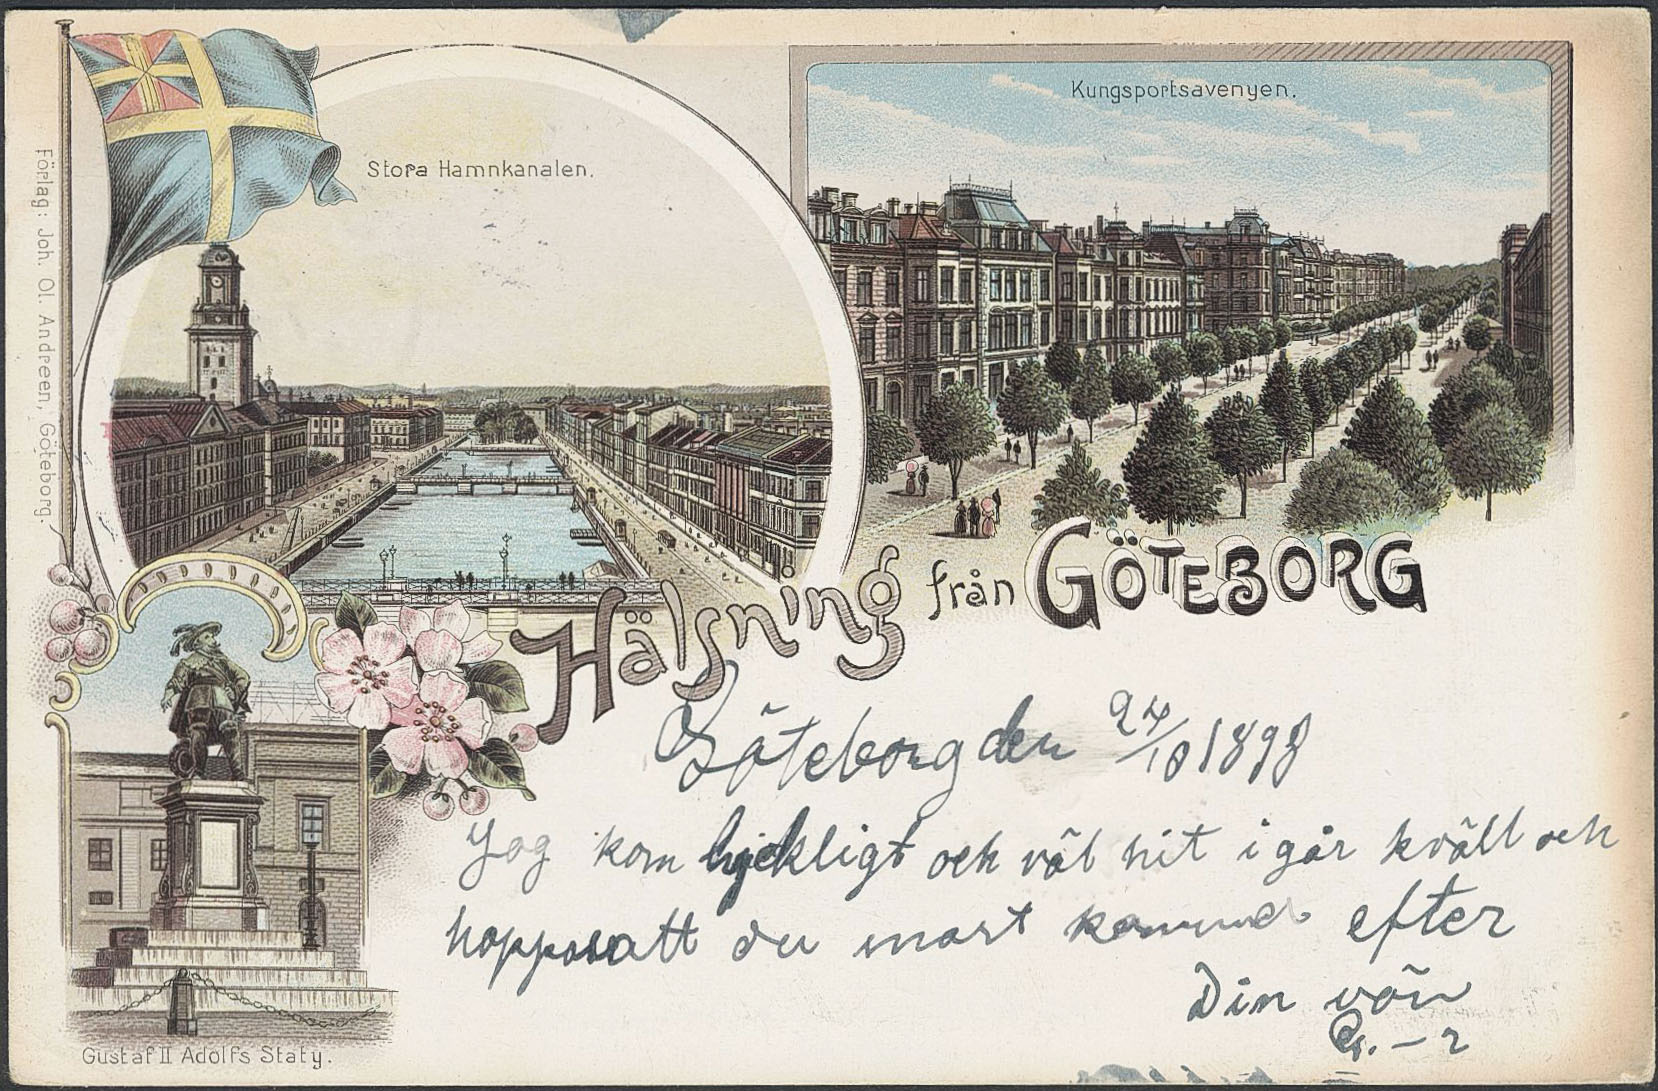 Stora Hamnkanalen.
Kungsportsavenyen.
Förlag: Joh. Ol. Andreen, Göteborg.
Hälsning från GÖTEBORG
Göteborg den 24/10 1898
Jag kom lyckligt och väl hit i går kväll och
hoppas att du snart kommer efter
Din vän
Gustaf II Adolfs Staty.